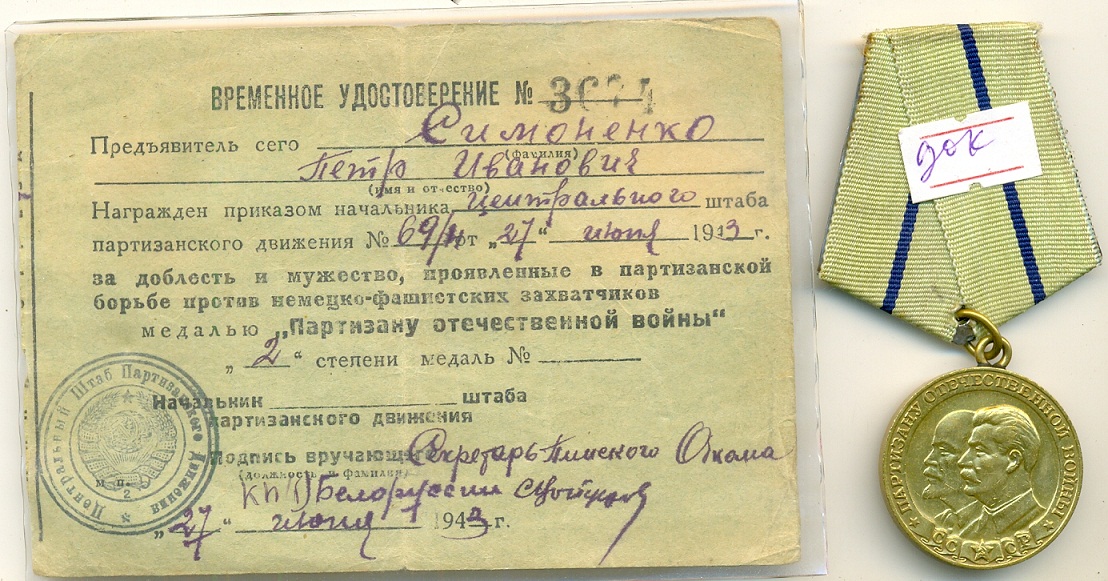 ВРЕМЕННОЕ УДОСТОВЕРЕНИЕ № 3674
Предъявитель сего Симоненко
(фамилия)
Петр Иванович
(имя и отчество)
Награжден приказом начальника Центрального штаба
партизанского движения № 69/н от „27“ июня 1943 г.
за доблесть и мужество, проявленные в партизанской
борьбе против немецко-фашистских захватчиков
медалью „Партизану отечественной войны“
„2“ степени медаль №
Начальник штаба
партизанского движения
Подпись вручающего Секретарь Пинского Обкома
(должность и фамилия)
КП(б) Белоруссии
„27“ июня 1943 г.
Центральный Штаб Партизанского Движения
М. П.
2
док
ПАРТИЗАНУ ОТЕЧЕСТВЕННОЙ ВОЙНЫ
СССР